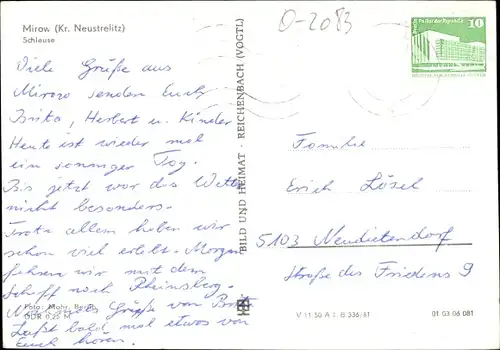 Mirow (Kr. Neustrelitz)
Schleuse
0-2083
Viele Grüße aus
Mirow senden Euch
Britta, Herbert u. Kinder
Heute ist wieder mal
ein sonniger Tag.
Bis jetzt war das Wetter
nicht besonders.
Trotz allem haben wir
schon viel erlebt. Morgen
fahren wir mit dem
Schiff nach Rheinsberg.
Grüße von
Laßt bald mal etwas von
Euch hören.
Foto: Mohr, Berlin
DDR 0,25 M
BILD UND HEIMAT · REICHENBACH (VOGTL)
10
Familie
Erich Lösel
5103 Neudietendorf
Straße des Friedens 9
V 11 50 A 1 B 336/81
01 03 06 081